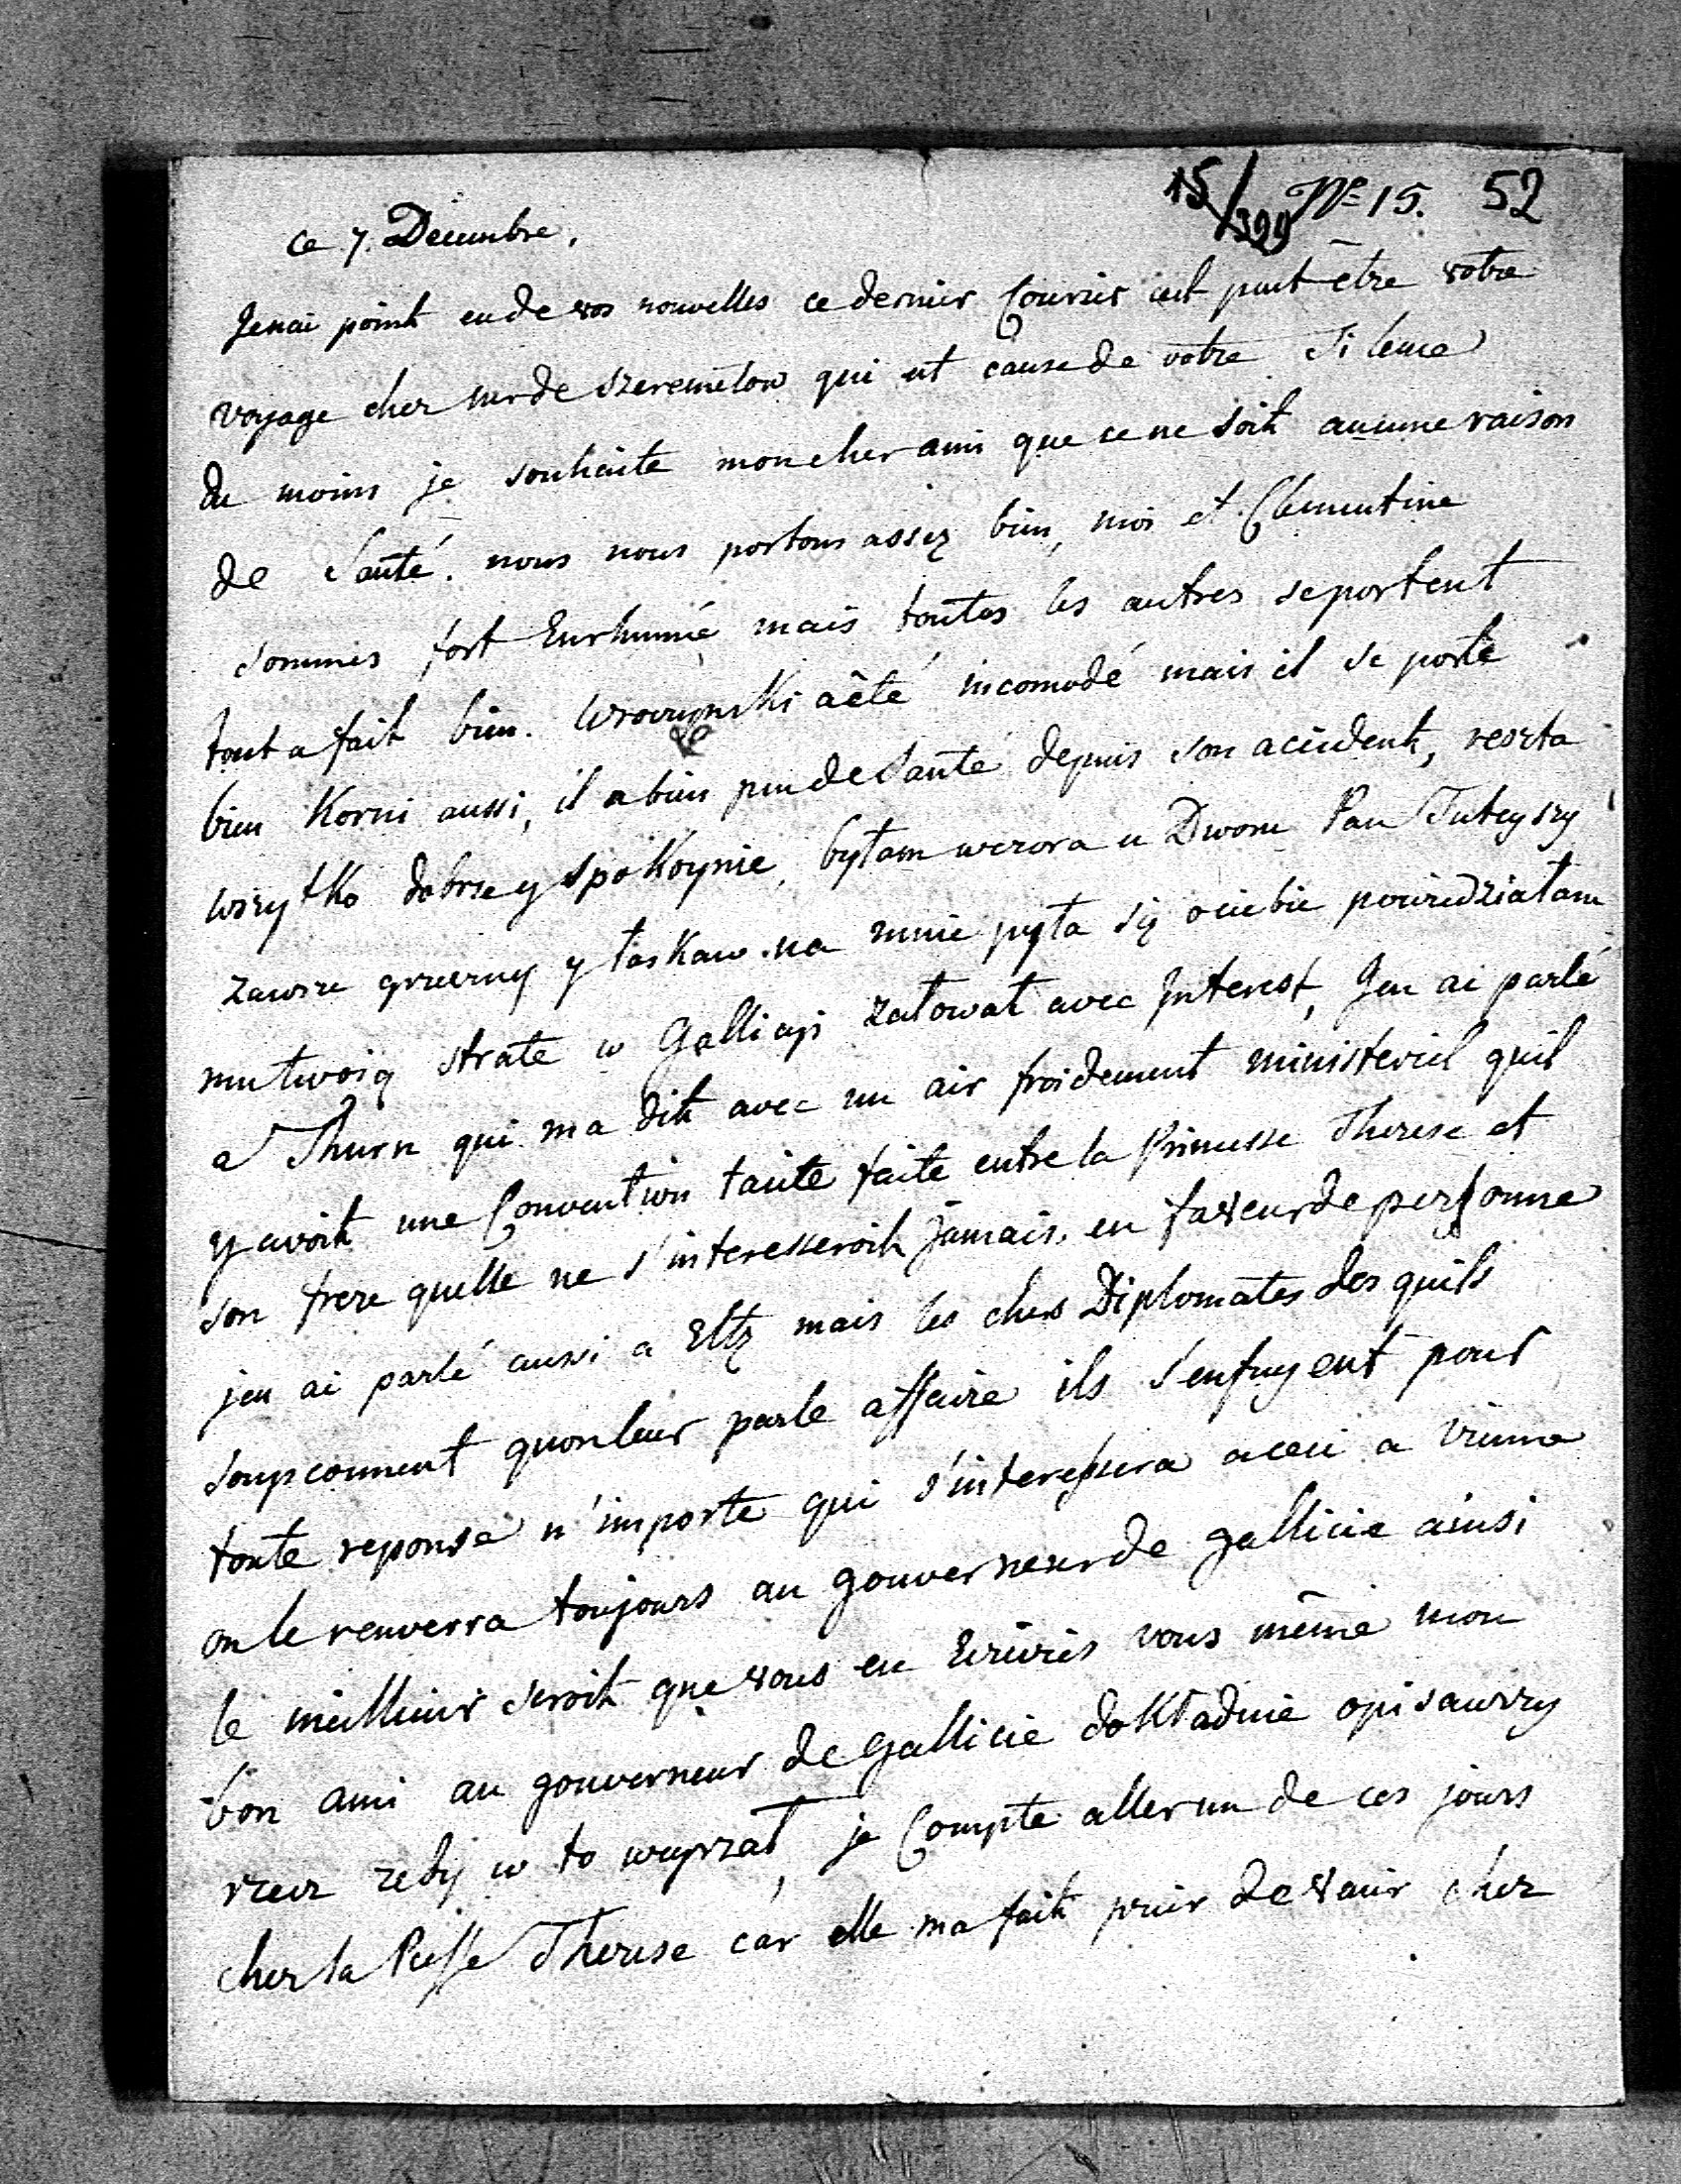 15/399 No 15. 52
ce 7. Decembre.
Jenai point eude vos nouvelles ce dernier Courier cest peut-être votre
voyage chez mr de Szeremetow qui est cause de votre Silence
du moins je souhaite moncher ami que ce ne soit aucune raison
de Santé. nous nous portons assez bien, moi et Clementine
sommes fort Enrhumé mais toutes les autres seportent
tout a fait bien. aêté incomodé mais il se porte
bien Korni aussi, il a bien peu deSanté depuis son accident, reszta
wszytko dobrze y spokoynie, bylam wczora u Dworu Pan Tuteyszy
zawsze grzeczny y łaskaw na mnie pyta się ociebie powiedziałam
mu twoią strate w Gallicyi załował avec Interest, Jen ai parlé
a Thurn qui ma dit avec un air froidement ministeriel quil
y avoit une Convention tacite faite entre la Princesse Therese et
son frere quelle ne s'interesseroit jamais en faveurde personne
jen ai parlé aussi a Eltz mais les chers Diplomates des quils
soupconnent quonleur parle affaire ils s'enfuyent pour
toute reponse n'importe qui s'interessera aceci a Vienne
on le renverra toujours au gouverneurde gallicie ainsi
le meilleur seroit que vous en Ecrivies vous même mon
bon ami au gouverneur de Gallicie dokładnie opisawszy
rzecz zeby w to weyrzał, je Compte aller un de ces jours
chez la Psse Therese car elle ma fait prier de venir chez